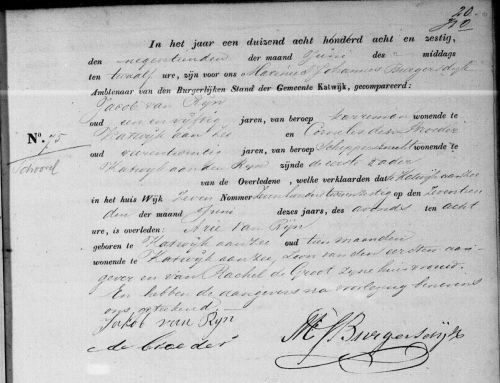 20
In het jaar een duizend acht honderd acht en zestig,
den negentienden der maand Junij des middags
ten twaalf ure, zijn voor ons Marinus Johannes Burgersdijk
Ambtenaar van den Burgerlijken Stand der Gemeente Katwijk, gecompareerd:
Jacob van Rijn
oud een en vijftig jaren, van beroep wonende te
Katwijk aan Zee en Cornelis de Groeder
oud jaren, van beroep wonende te
Katwijk aan den Rijn zijnde de eerste vader
van de Overledene, welke verklaarden dat te Katwijk aan Zee
in het huis Wijk Zeven Nommer op den zeventien
den der maand Junij dezes jaars, des avonds ten acht
ure, is overleden: Arie van Rijn
geboren te Katwijk aan Zee oud tien maanden
wonende te Katwijk aan Zee, Zoon van den eersten aan-
gever en van Rachel de Groot zijne huisvrouw.
En hebben de aangevers na voorlezing benevens
ons, geteekend.
Jakob van Ryn
de Groeder MJBurgersdijk
No. 75